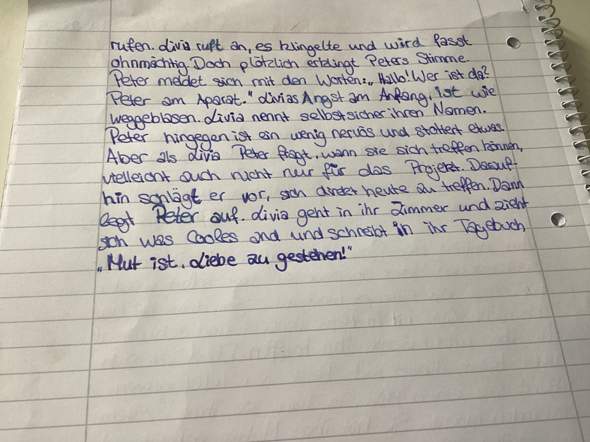 rufen. Livia ruft an, es klingelte und wird fasst
ohnmächtig. Doch plötzlich erklingt Peters Stimme
Peter meldet sich mit den Worten: „Hallo! Wer ist da?
Peter am Aparat." Livias Angst am Anfang, ist wie
weggeblasen. Livia nennt selbstsicher ihren Namen.
Peter hingegen ist ein wenig nervös und stottert etwas.
Aber als Livia Peter fragt, wann sie sich treffen können,
vielleicht auch nicht nur für das Projekt. Darauf-
hin schlägt er vor, sich direkt heute zu treffen. Dann
legt Peter auf. Livia geht in ihr Zimmer und zieht
sich was Cooles and und schreibt in ihr Tagebuch
„Mut ist, Liebe zu gestehen!"